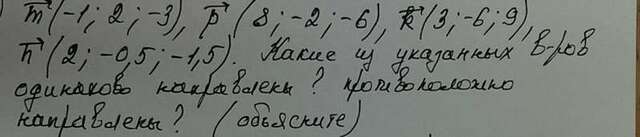 ) m⃗(-1; 2; -3), p⃗(8; -2; -6), k⃗(3; -6; 9),
n⃗(2; -0,5; -1,5). Какие из указанных в-ров
одинаково направлены? противоположно
направлены? (объясните)